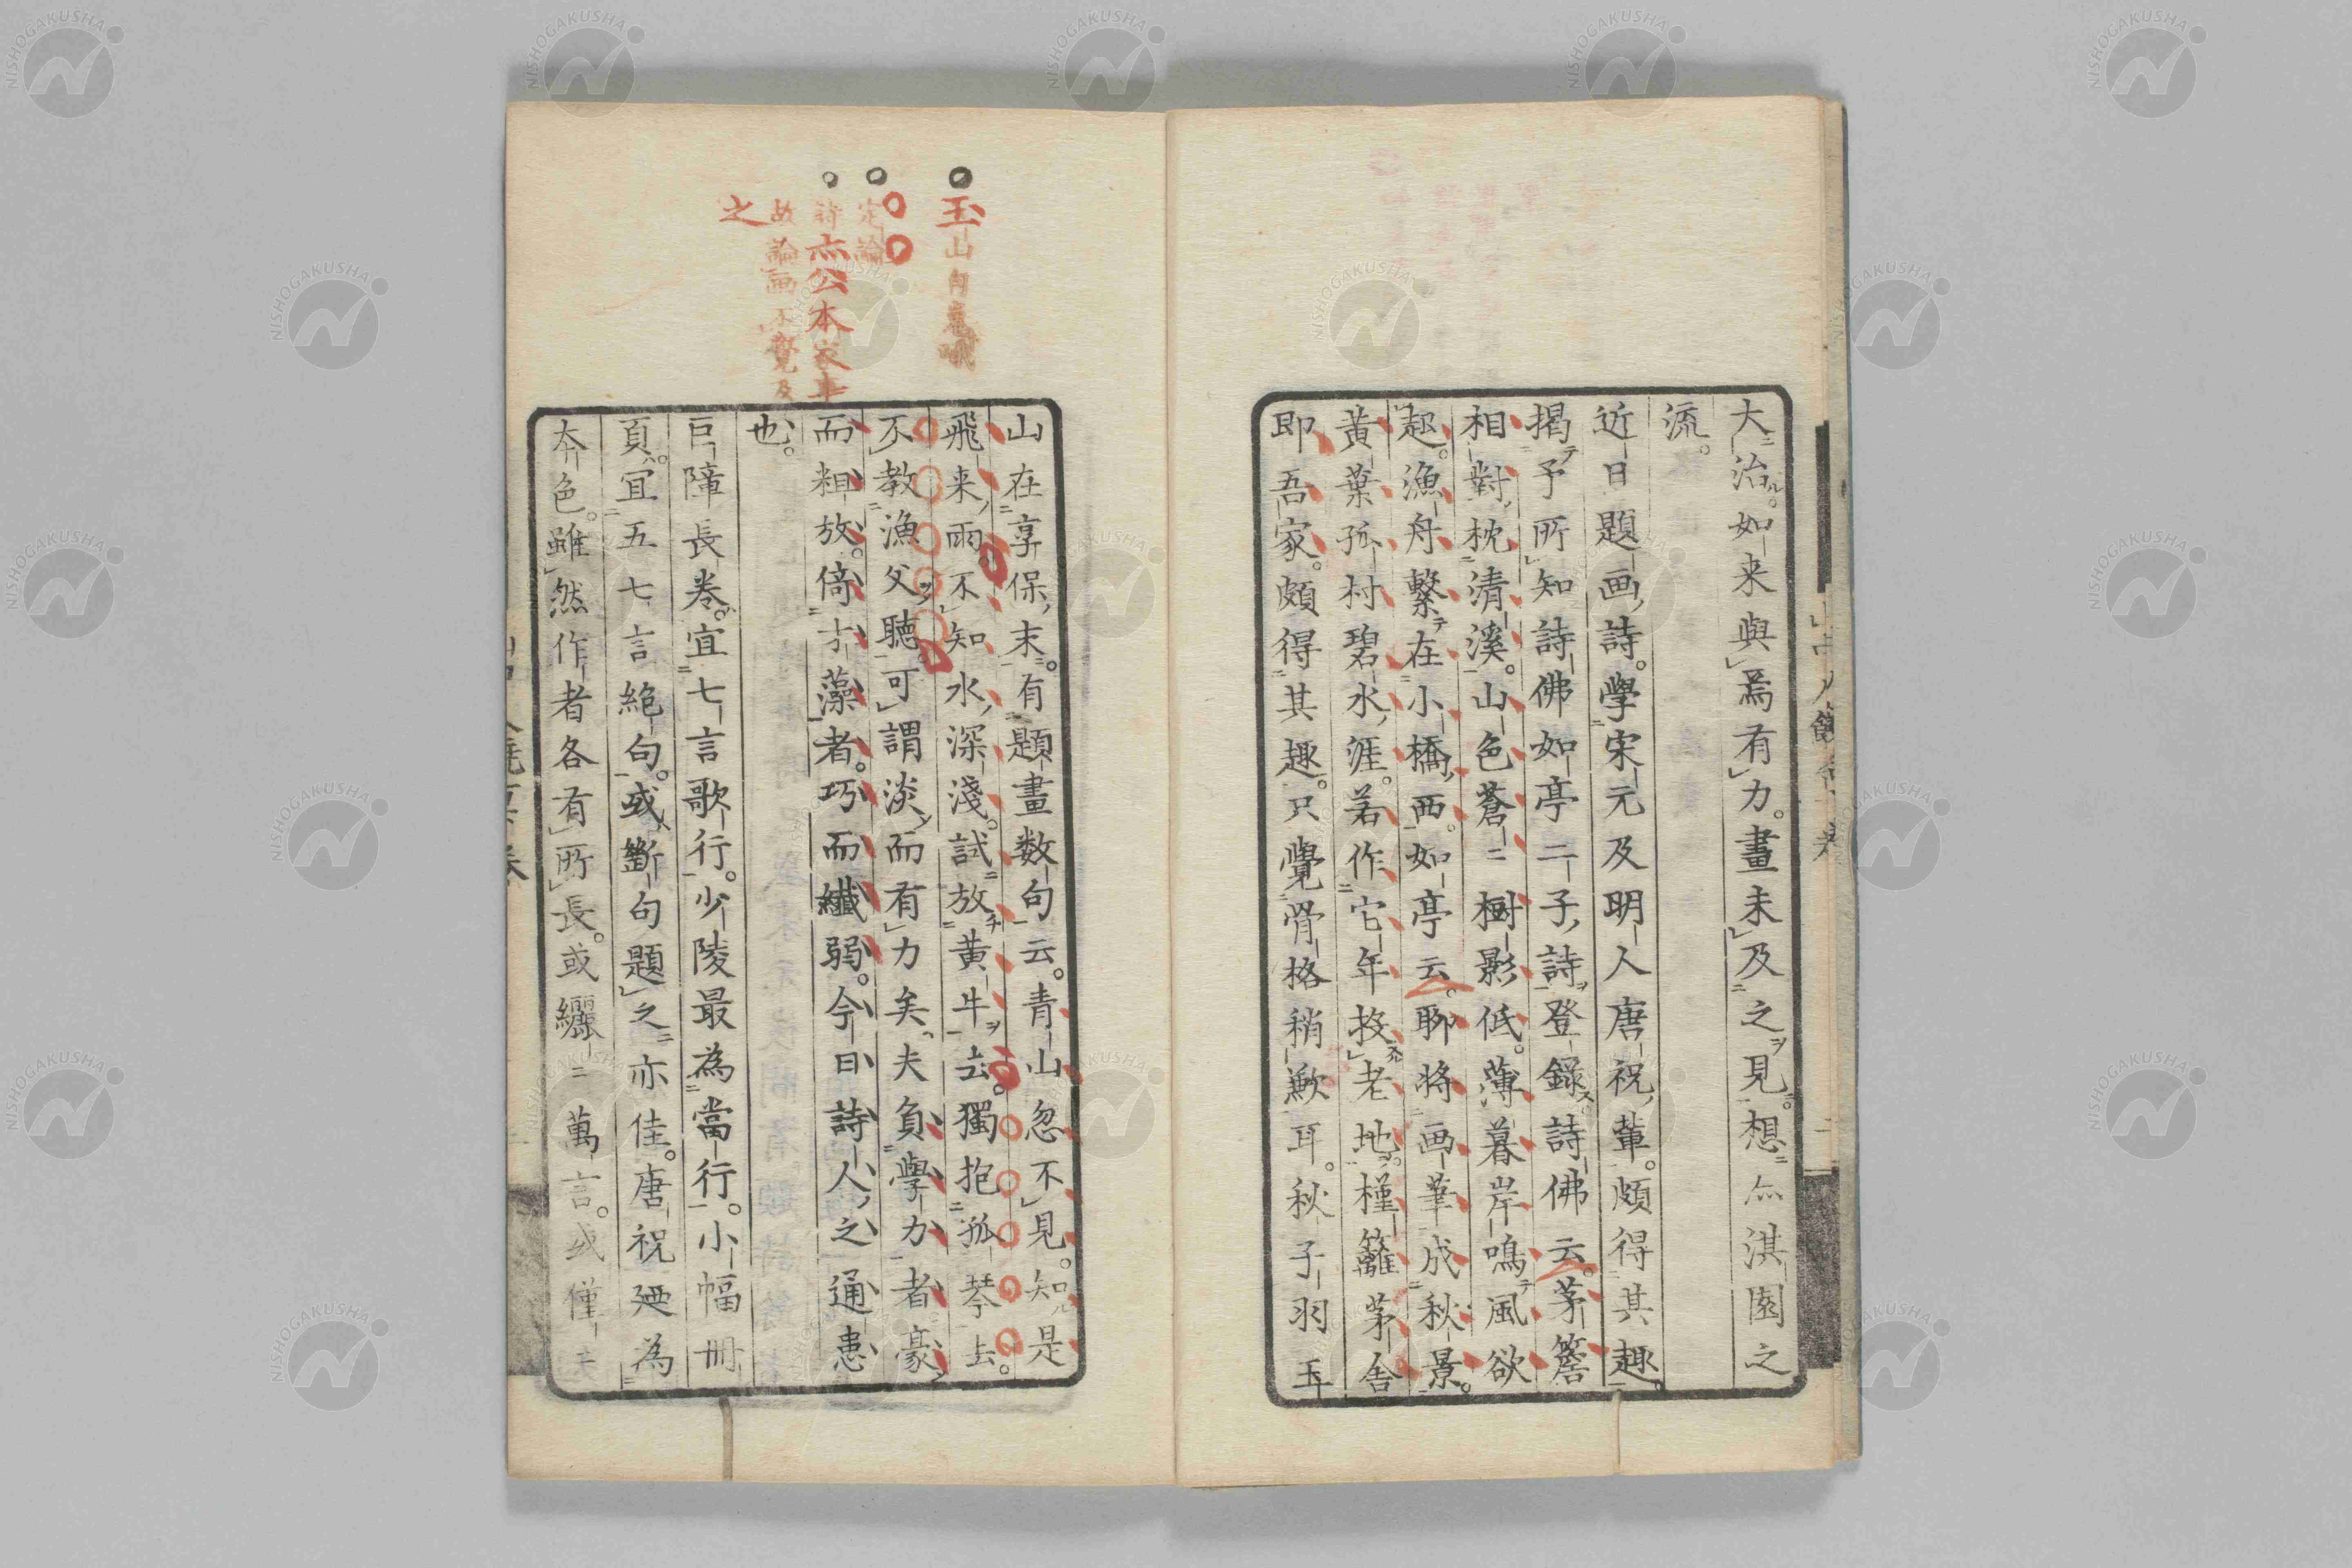 大治。如来與爲有力。畫未及之見。想亦淇園之
流。
近日題画詩。學宋元及明人唐祝輩。頗得其趣。
掲予所知詩佛如亭二子詩登録。詩佛云。茅簷
相對枕清溪。山色蒼〻樹影低。薄暮岸鳴風欲
起。漁舟繋在小橋西。如亭云。聊將画筆成秋景。
黄葉孤村碧水涯。若作它年投老地。槿籬茅舎
即吾家。頗得其趣。只覺骨格稍歉耳。秋子羽玉
山在享保末。有題畫数句云。青山忽不見。知是
飛来雨。不知水深淺。試放黄牛去。獨抱孤琴去。
不教漁父聴。可謂淡而有力矣。夫負學力者豪
而粗放。倚才藻者。巧而纖弱。今日詩人之通患
也。
巨障長卷。宜七言歌行。少陵最為當行。小幅冊
頁。宜五七言絶句。或斷句題之亦佳。唐祝廼為
本色。雖然作者各有所長。或纚〻萬言。或僅〻
玉山
定論
詩亦公本家事
故論画不覺及
之